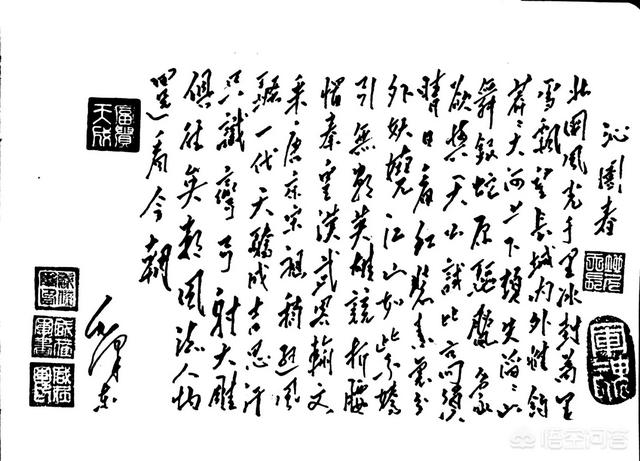 沁園春
北國風光千里冰封萬里
雪飄望長城內外惟餘
莽〻大河上下頓失滔〻山
舞銀蛇原驅臘象
欲與天公試比高須
晴日看紅裝素裹分
外妖嬈江山如此多嬌
引無數英雄競折腰
惜秦皇漢武略輸文
采唐宗宋祖稍遜風
騷一代天驕成吉思汗
只識彎弓射大雕
俱往矣數風流人物
還看今朝
毛澤東
富貴天成
軍魂
悟空问答